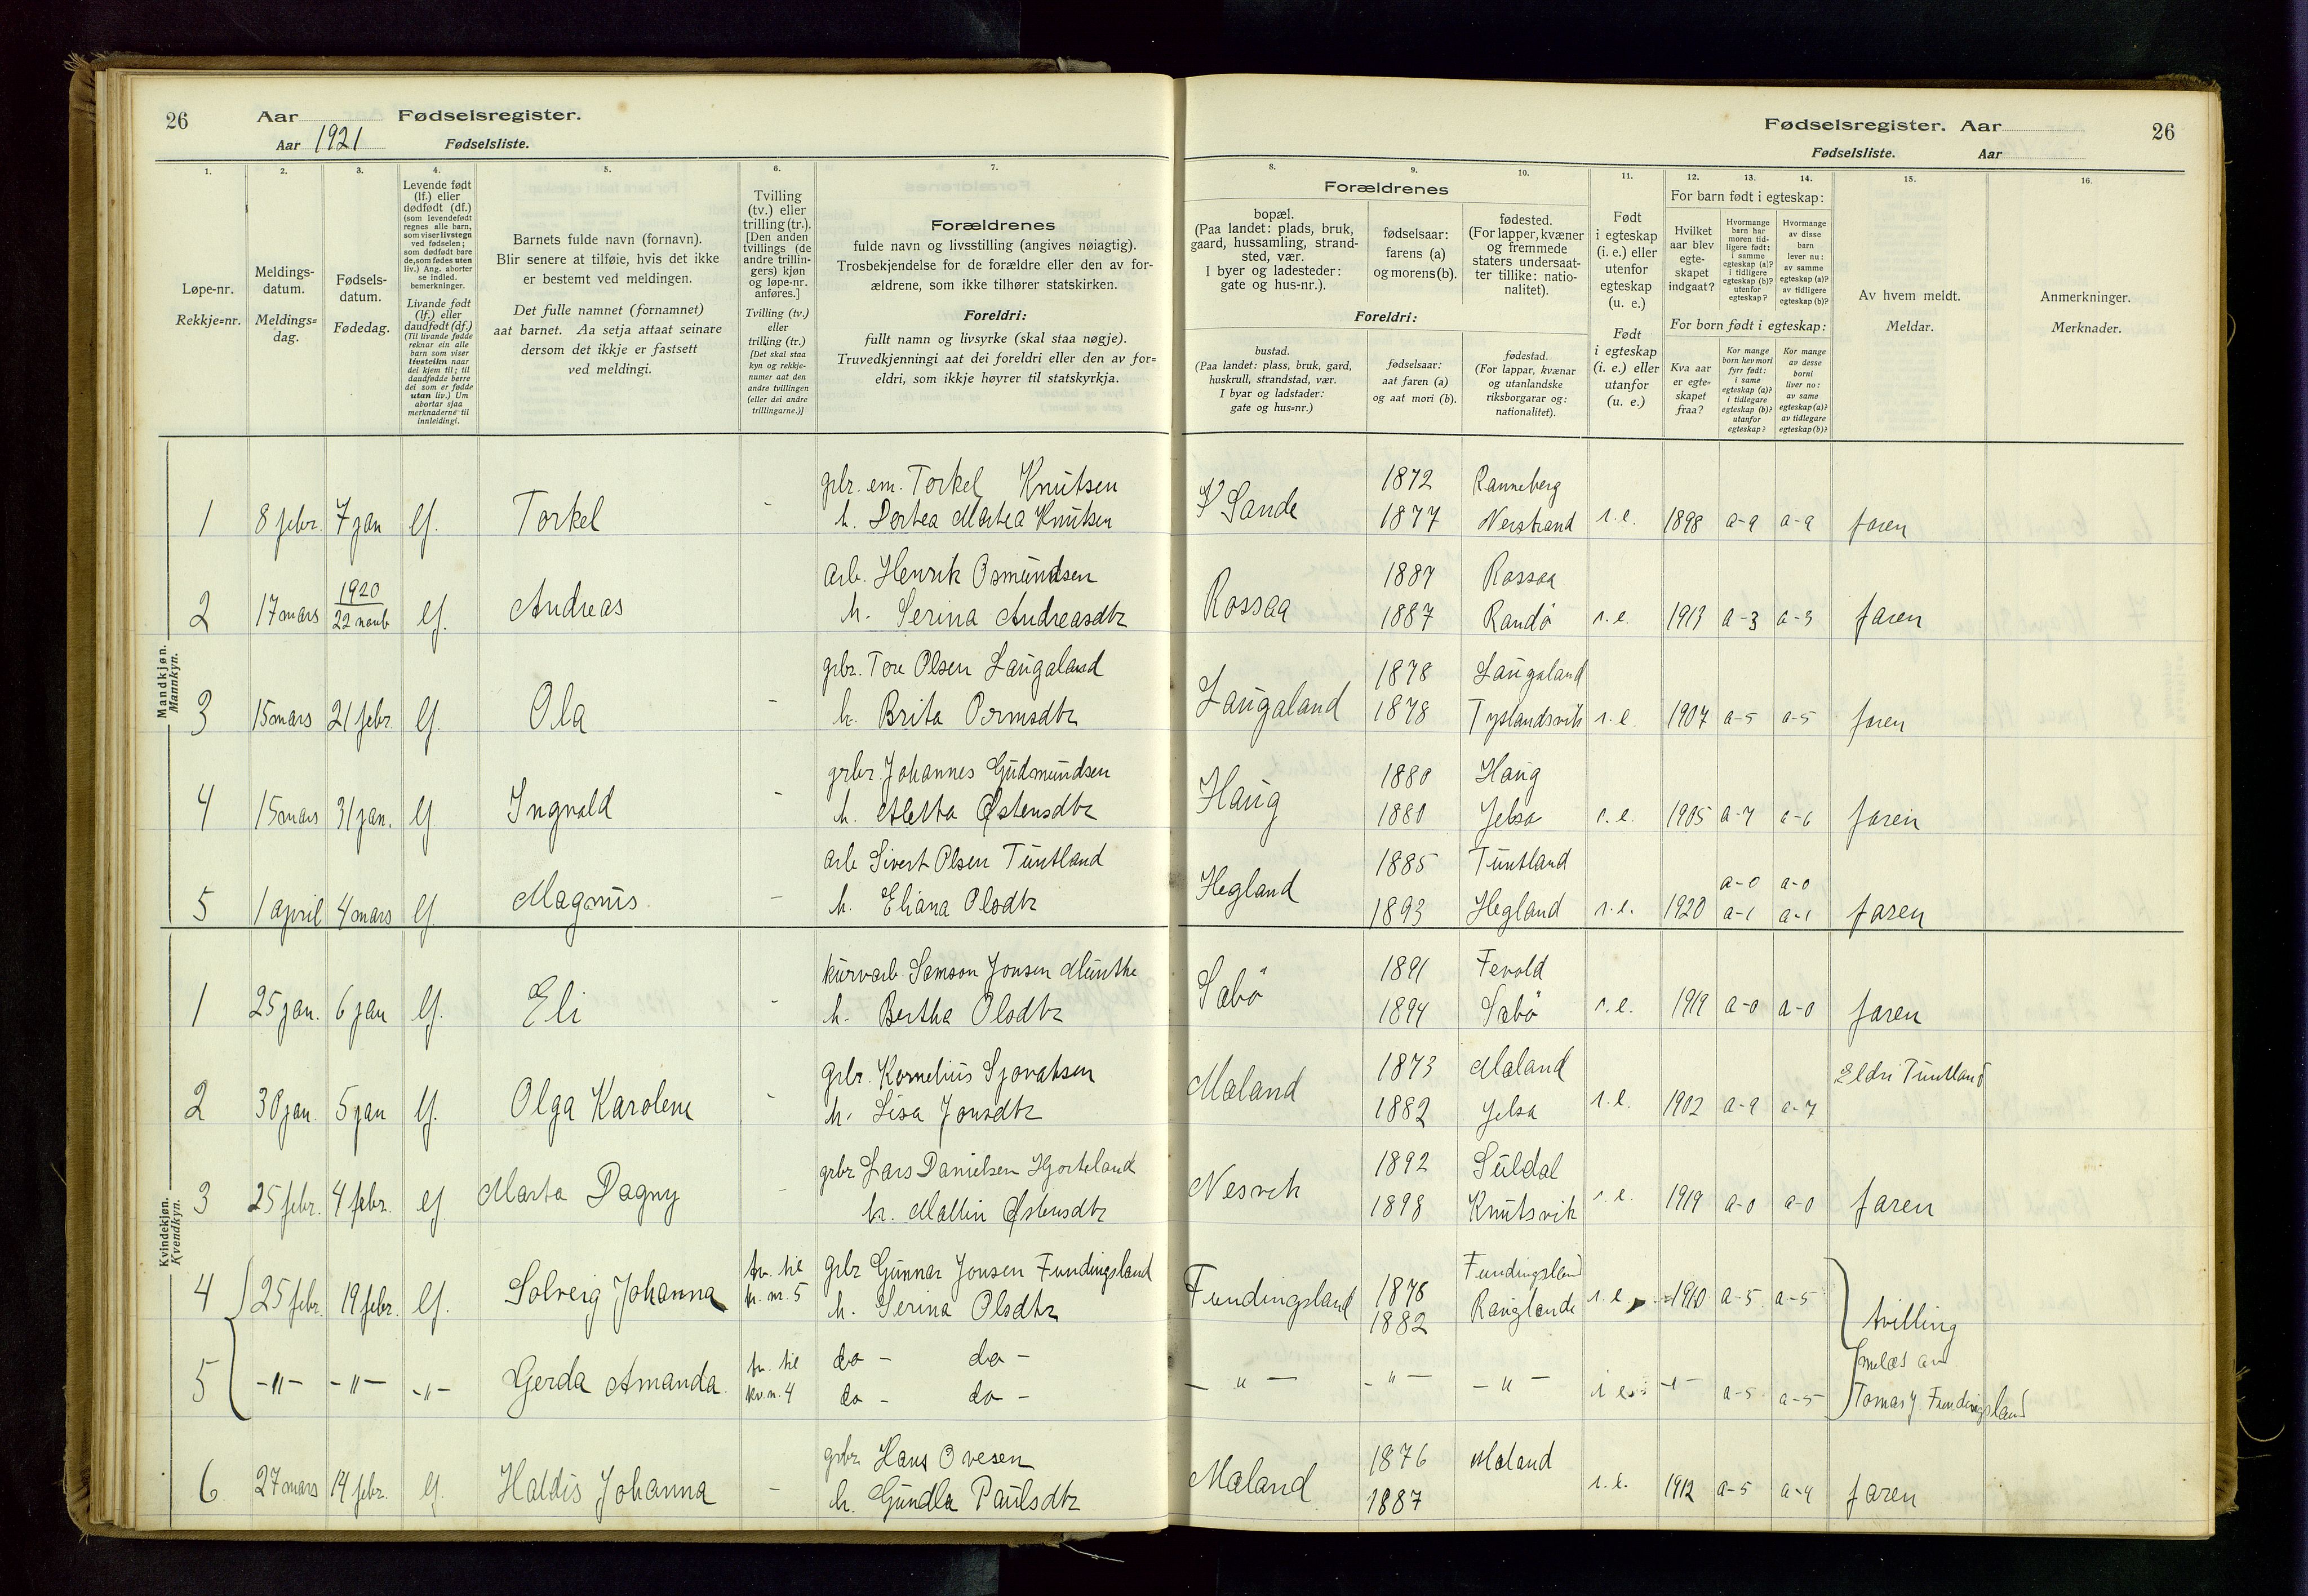 26 Aar Fødselsregister.
Aar 1921 Fødselsliste.
Fødselsregister. Aar 26
Fødselsliste. Aar
1. 2. 3. 4. 5. 6. 7.
Løpe-nr.
Rekkje=nr.
Meldings-
datum.
Meldings=
dag.
Fødsels-
datum.
Fødedag.
Levende født
(lf.) eller
dødfødt (df.)
(som levendefødt
regnes alle barn,
som viser livstegn
ved fødselen;
som dødfødt bare
de, som fødes uten
liv.) Ang. aborter
se indled.
bemerkninger.
Livande født
(lf.) eller
daudfødt (df.)
(Til livande fødde
reknar ein alle
barn som viser
livsteikn naar
dei kjem til; til
daudfødde berre
dei som er fødde
utan liv.) Um
abortar sjaa
merknaderne til
innleidingi.
Barnets fulde navn (fornavn).
Blir senere at tilføie, hvis det ikke
er bestemt ved meldingen.
Det fulle namnet (fornamnet)
aat barnet. Aa setja attaat seinare
dersom det ikkje er fastsett
ved meldingi.
Tvilling
(tv.) eller
trilling (tr.).
[Den anden
tvillings (de
andre trillin-
gers) kjøn
og løpe-nr.
anføres.]
Tvilling (tv.)
eller
trilling (tr.)
[Det skal staa
kyn og rekkje-
numer aat den
andre tvillingen
(eller dei andre
trillingarne.)]
Forældrenes
fulde navn og livsstilling (angives nøiagtig).
Trosbekjendelse for de forældre eller den av for-
ældrene, som ikke tilhører statskirken.
Foreldri:
fullt namn og livsyrke (skal staa nøgje).
Truvedkjenningi aat dei foreldri eller den av for=
eldri, som ikkje høyrer til statskyrkja.
8. 9. 10. 11. 12. 13. 14. 15. 16.
Forældrenes
bopæl.
(Paa landet: plads, bruk,
gaard, hussamling, strand-
sted, vær.
I byer og ladesteder:
gate og hus-nr.).
fødselsaar:
farens (a)
og morens (b).
fødested.
(For lapper, kvæner
og fremmede
staters undersaat-
ter tillike: natio-
nalitet).
Foreldri:
bustad.
(Paa landet: plass, bruk, gard,
huskrull, strandstad, vær.
I byar og ladstader:
gate og hus=nr.)
fødselsaar:
aat faren (a)
og aat mori (b).
fødestad.
(For lappar, kvænar
og utanlandske
riksborgarar og:
nationalitet).
Født
i egteskap
(i. e.) eller
utenfor
egteskap
(u. e.)
Født
i egteskap
(i. e.) eller
utanfor
(u. e.)
For barn født i egteskap:
Hvilket
aar blev
egte-
skapet
indgaat?
Hvormange
barn har
moren tid-
ligere født:
i samme
egteskap (a)?
i tidligere
egteskap (b)?
utenfor
egteskap?
Hvormange
av disse
barn
lever nu:
av samme
egteskap (a)?
av tidligere
egteskap (b)?
For born født i egteskap:
Kva aar
er egte=
skapet
fraa?
Kor mange
born hev mori
fyrr født:
i same
egteskap (a)?
i tidlegare
egteskap (b)?
utanfor
egteskap?
Kor mange
av desse
borni
liver no:
av same
egteskap (a)?
av tidlegare
egteskap (b)?
Av hvem meldt.
Meldar.
Anmerkninger.
Merknader.
Mandkjøn.
Mannkyn.
grbr. em. Torkel Knutsen 1872 Ranneberg
1 8 febr. 7 jan lf. Torkel - h. Dortea Martea Knutsen V Sande 1877 Nerstrand i. e. 1898 a-9 a-9 faren
arb. Henrik Osmundsen 1887 Rossaa
2 17 mars 1920 22 novb lf. Andreas h. Serina Andreasdtr Rossaa 1887 Randø i. e. 1913 a-3 a-3 faren
grbr. Tore Olsen Laugaland 1878 Laugaland
3 15 mars 21 febr. lf. Ola - h. Brita Ormsdtr Laugaland 1878 Tyslandsvik i. e. 1907 a-5 a-5 faren
grbr. Johannes Gudmundsen 1880 Haug
4 15 mars 31 jan. lf Ingvald - h. Aletta Østensdtr Haug 1880 Jelsa i. e. 1905 a-7 a-6 faren
arb Sivert Olsen Tuntland 1885 Tuntland a-0 a-0
5 1 april 4 mars lf Magnus - h. Eliana Olsdtr Hegland 1893 Hegland i. e. 1920 a-1 a-1 faren
Kvindekjøn.
Kvendkyn.
kurvarb. Samson Jonsen Munthe 1891 Fevold
1 25 jan. 6 jan lf. Eli - h. Bertha Olsdtr Sabø 1894 Sabø i. e. 1919 a-0 a-0 faren
grbr. Kornelius Sjovatsen 1873 Maland Eldri Tuntland
2 30 jan. 5 jan lf. Olga Karolene - h. Lisa Jonsdtr Maland 1882 Jelsa i. e. 1902 a-9 a-7
grbr Lars Danielsen Hjorteland 1892 Suldal
3 25 febr. 4 febr. lf Marta Dagny - h. Mallin Østensdtr Nesvik 1898 Knutsvik i. e. 1919 a-0 a-0 faren
tv. til grbr Gunnar Jonsen Fundingsland Fundingsland
4 25 febr. 19 febr. lf. Solveig Johanna nr. 5 h. Serina Olsdtr Fundingsland 1878 1882 Rauglande i. e. 1910 a-5 a-5 tvilling
tv. til do - do - melat av
5 -"- -"- -"- Gerda Amanda kv. n. 4 do - do - -"- -"- -"- i e. -"- a-5 a-5 Tomas J. Fundingsland
grbr Hans Ovesen 1876 Maland
6 27 mars 14 febr. lf. Haldis Johanna - h. Gundla Paulsdtr Maland 1887 i. e. 1912 a-5 a-4 faren